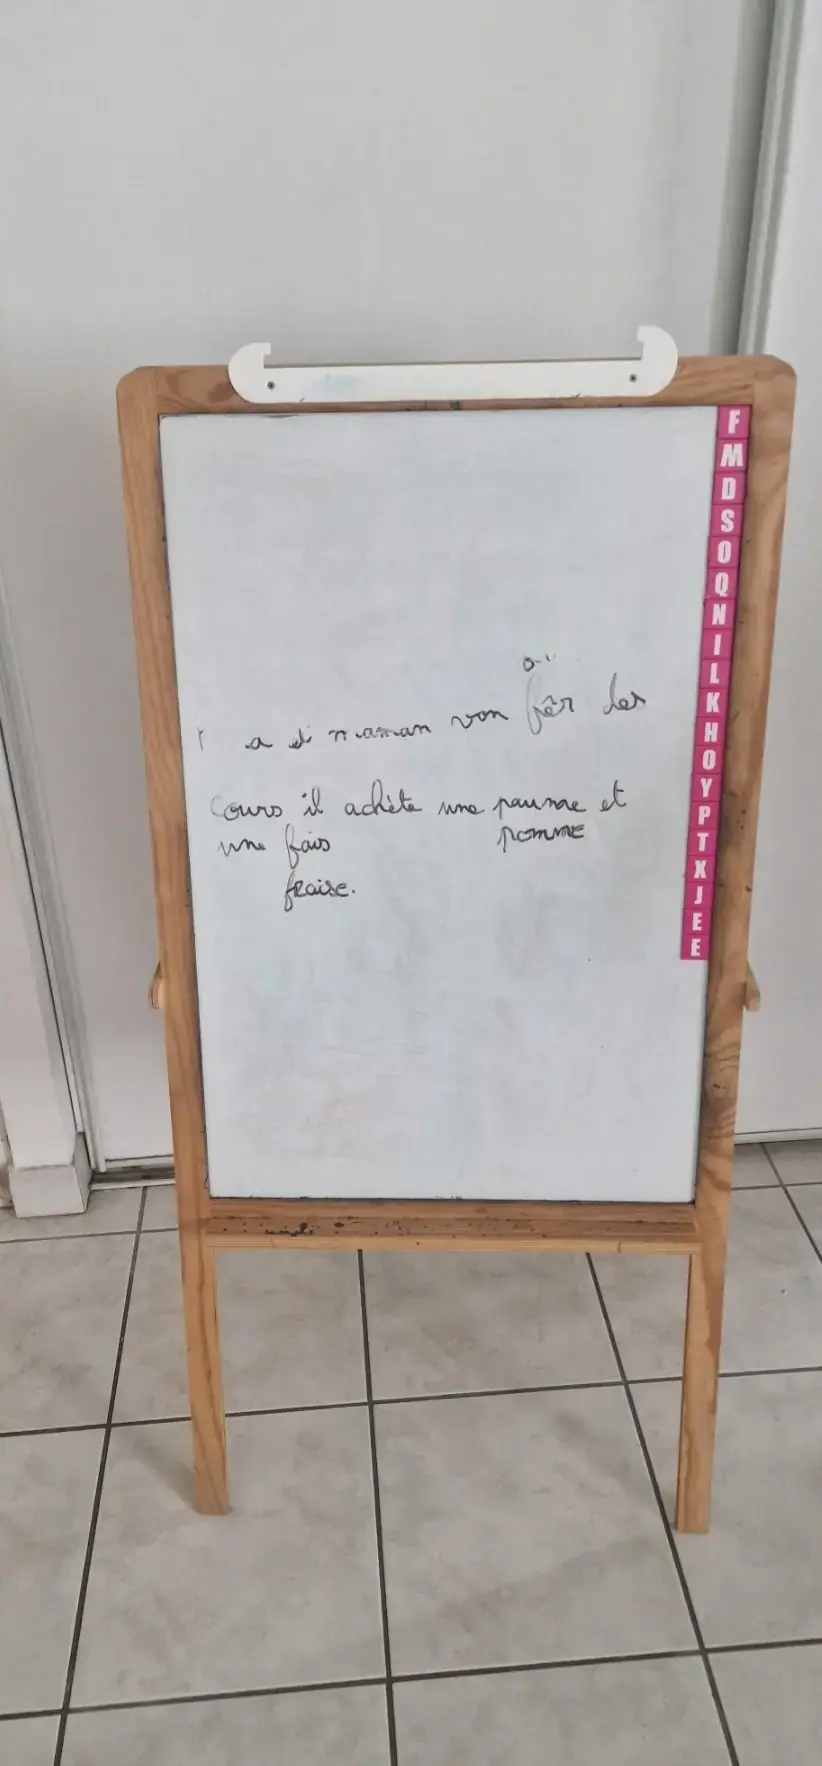 ai
a et maman von fêr les
cours il achète une paume et
une fais pomme
fraise.
F
M
D
S
O
Q
N
I
L
K
H
O
Y
P
T
X
J
E
E